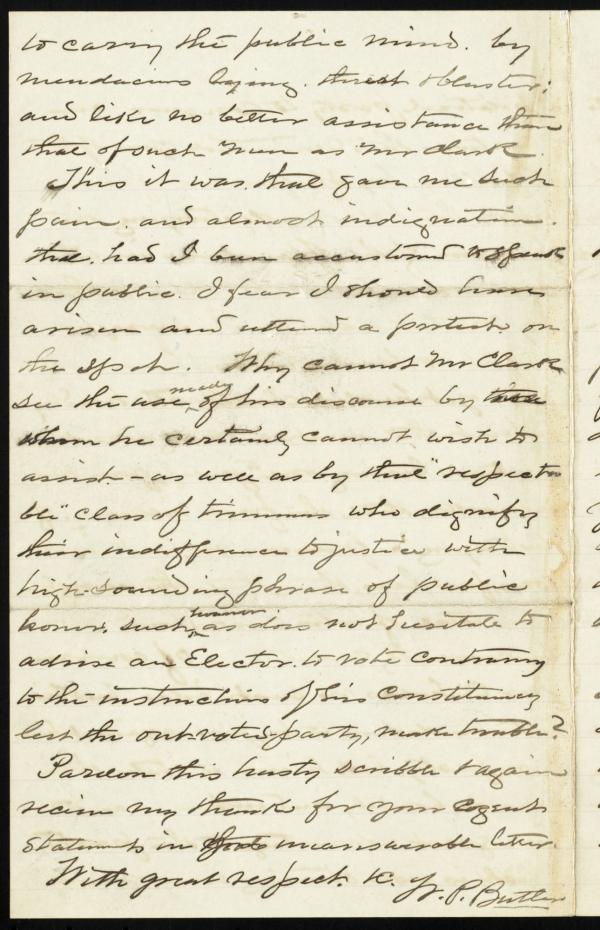 to carry the public mind. by
mendacious lying. threat & bluster;
and like no better assistance than
that of such men as Mr Clark.
This it was, that gave me such
pain. and almost indignation.
that, had I been accustomed to speak
in public. I fear I should have
arisen and uttered a protest on
the spot. Why cannot Mr Clark
see the use made of his discourse by
whom he certainly cannot wish to
assist - as well as by that "respecta
ble" class of trimmers who dignify
their indifference to justice with
high-sounding phrase of public
honor. such as does not hesitate to
advise an Elector to vote contrary
to the instructions of his constituency
lest the out-voted-party, make trouble?
Pardon this hasty scribble & again
receive my thanks for your cogent
statements in unanswerable letter.
With great respect. &c. W. P. Butler